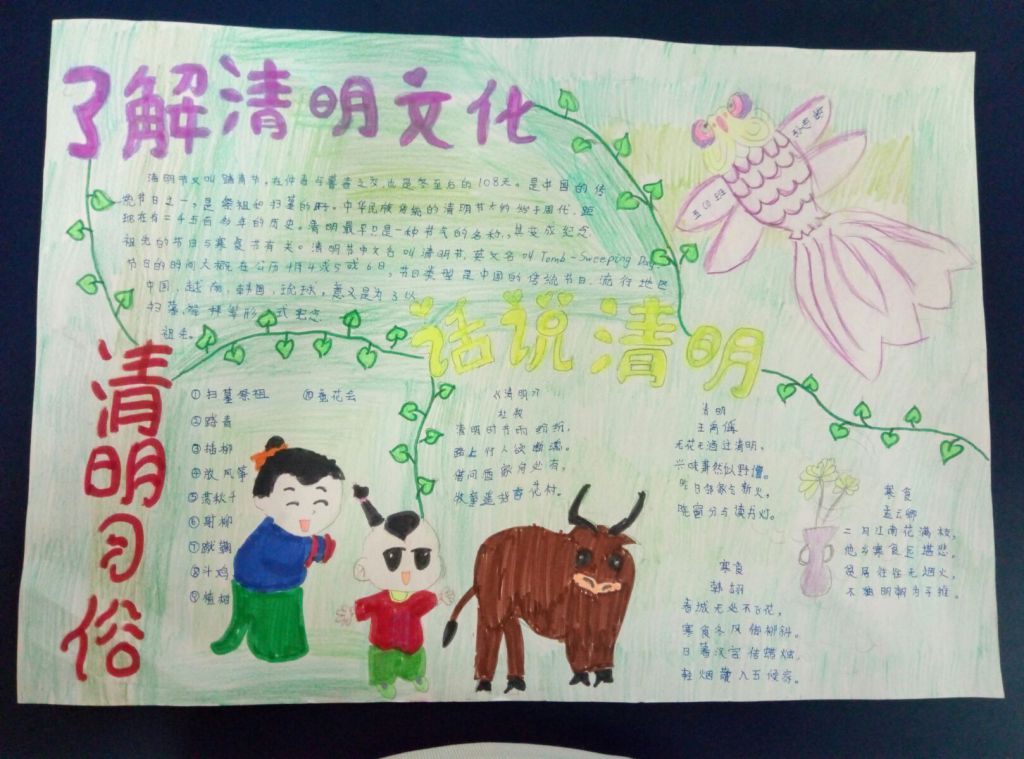 了解清明文化
清明节又叫踏青节,在仲春与暮春之交,也是冬至后的108天。是中国的传
统节日之一,是祭祖和扫墓的日子。中华民族传统的清明节大约始于周代,距
现在有二千五百多年的历史。清明最早只是一种节气的名称,其变成纪念
祖先的节日与寒食节有关。清明节中文名叫清明节,英文名叫Tomb-Sweeping Day,
节日的时间大概在公历4月4或5或6日,节日类型是中国的传统节日,流行地区
中国,越南,韩国,琉球,意义是为了以
扫墓,祭拜等形式纪念
祖先。
话说清明
清明习俗
①扫墓祭祖
⑩蚕花会
②踏青
③插柳
④放风筝
⑤荡秋千
⑥射柳
⑦蹴鞠
⑧斗鸡
⑨植树
《清明》
杜牧
清明时节雨纷纷,
路上行人欲断魂。
借问酒家何处有,
牧童遥指杏花村。
清明
王禹偁
无花无酒过清明,
兴味萧然似野僧。
昨日邻家乞新火,
晓窗分与读书灯。
寒食
韩翃
春城无处不飞花,
寒食东风御柳斜。
日暮汉宫传蜡烛,
轻烟散入五侯家。
寒食
孟云卿
二月江南花满枝,
他乡寒食远堪悲。
贫居往往无烟火,
不独明朝为子推。